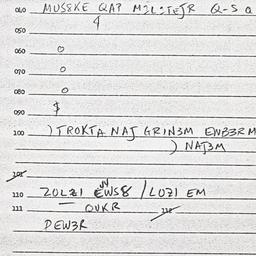 040 MUSEKE QAP M2L:TEJR Q-S Q
4
050
060 0
070 0
080 0
090 $
100 ) TROKTA NAJ GRIN3M EWB3RM
) NAJ3M
101
110 ZOLZI EWS8 / LOZI EM
111 OUKR 112
DEW3R